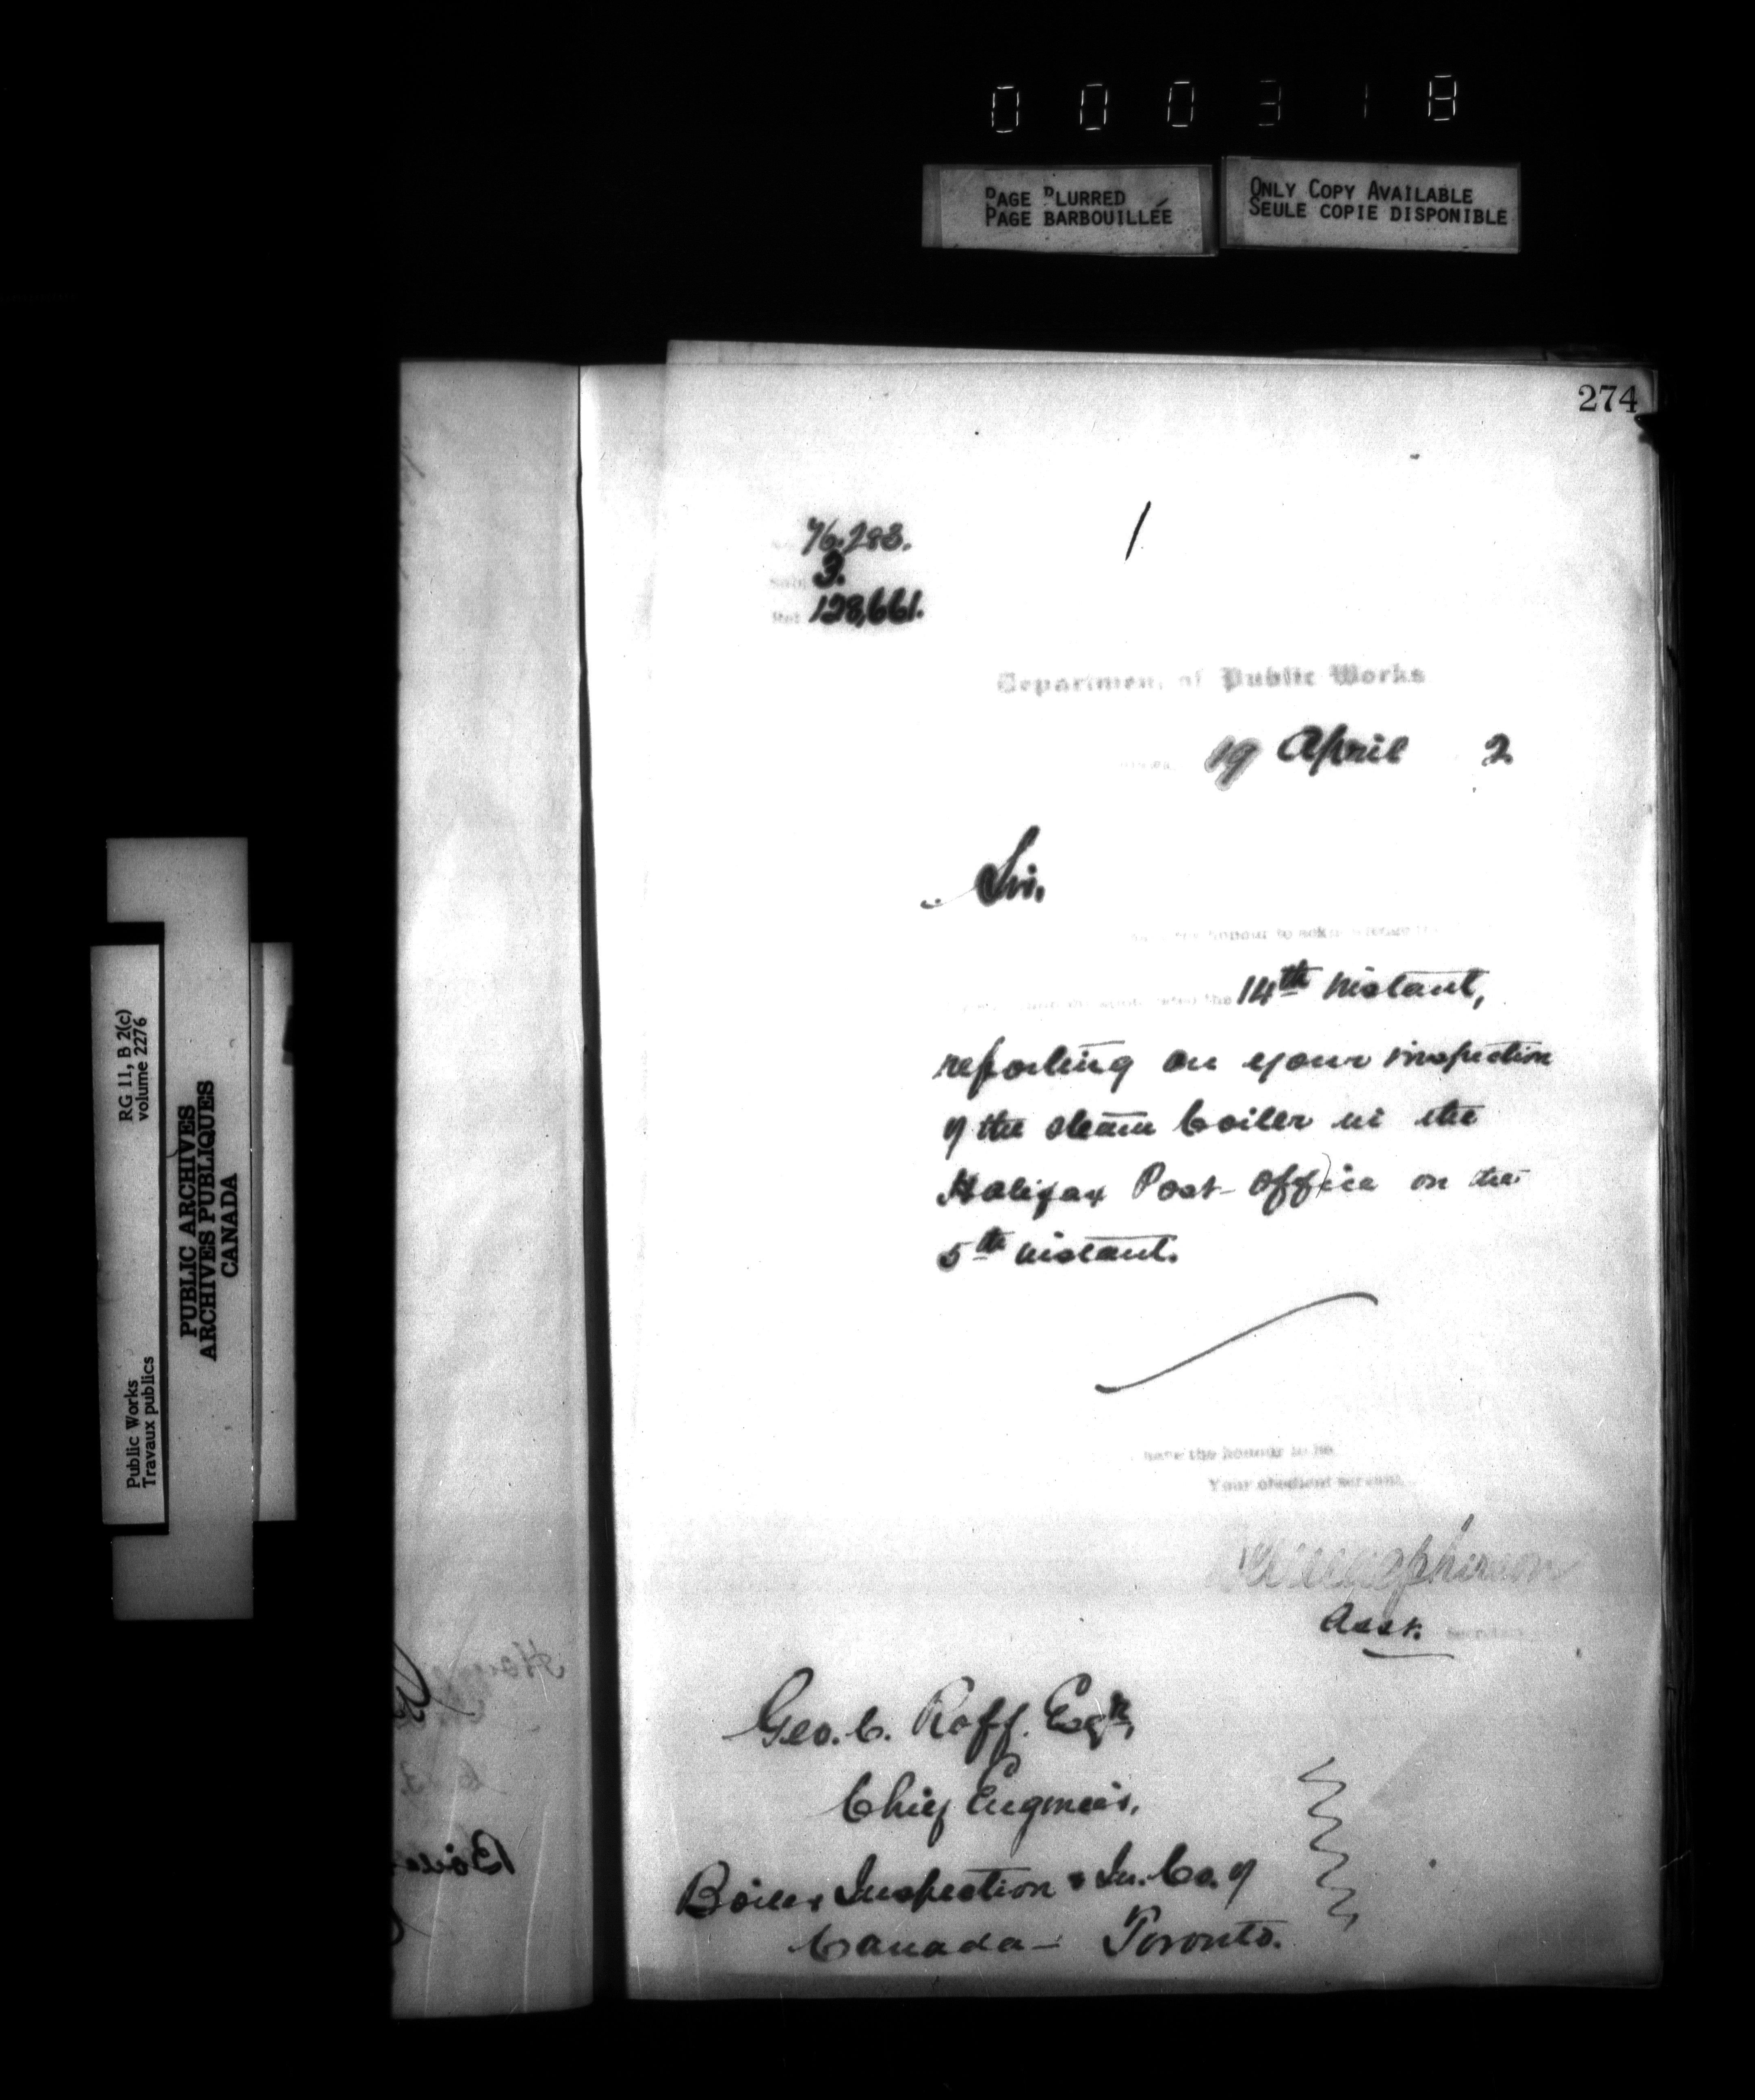 000318
PAGE BLURRED
PAGE BARBOUILLÉE
ONLY COPY AVAILABLE
SEULE COPIE DISPONIBLE
274
76,283.
Sub. 3.
Ref. 128,661.
Department of Public Works
19 April 2
Sir,
honour to acknowledge
the 14th instant,
reporting on your inspection
of the steam boiler in the
Halifax Post Office on the
5th instant.
have the honour to be
Your obedient servant
Asst.
Geo. C. Roff. Esqr,
Chief Engineer,
Boiler Inspection & In. Co. of
Canada — Toronto.
RG 11, B 2(c)
volume 2276
PUBLIC ARCHIVES
ARCHIVES PUBLIQUES
CANADA
Public Works
Travaux publics